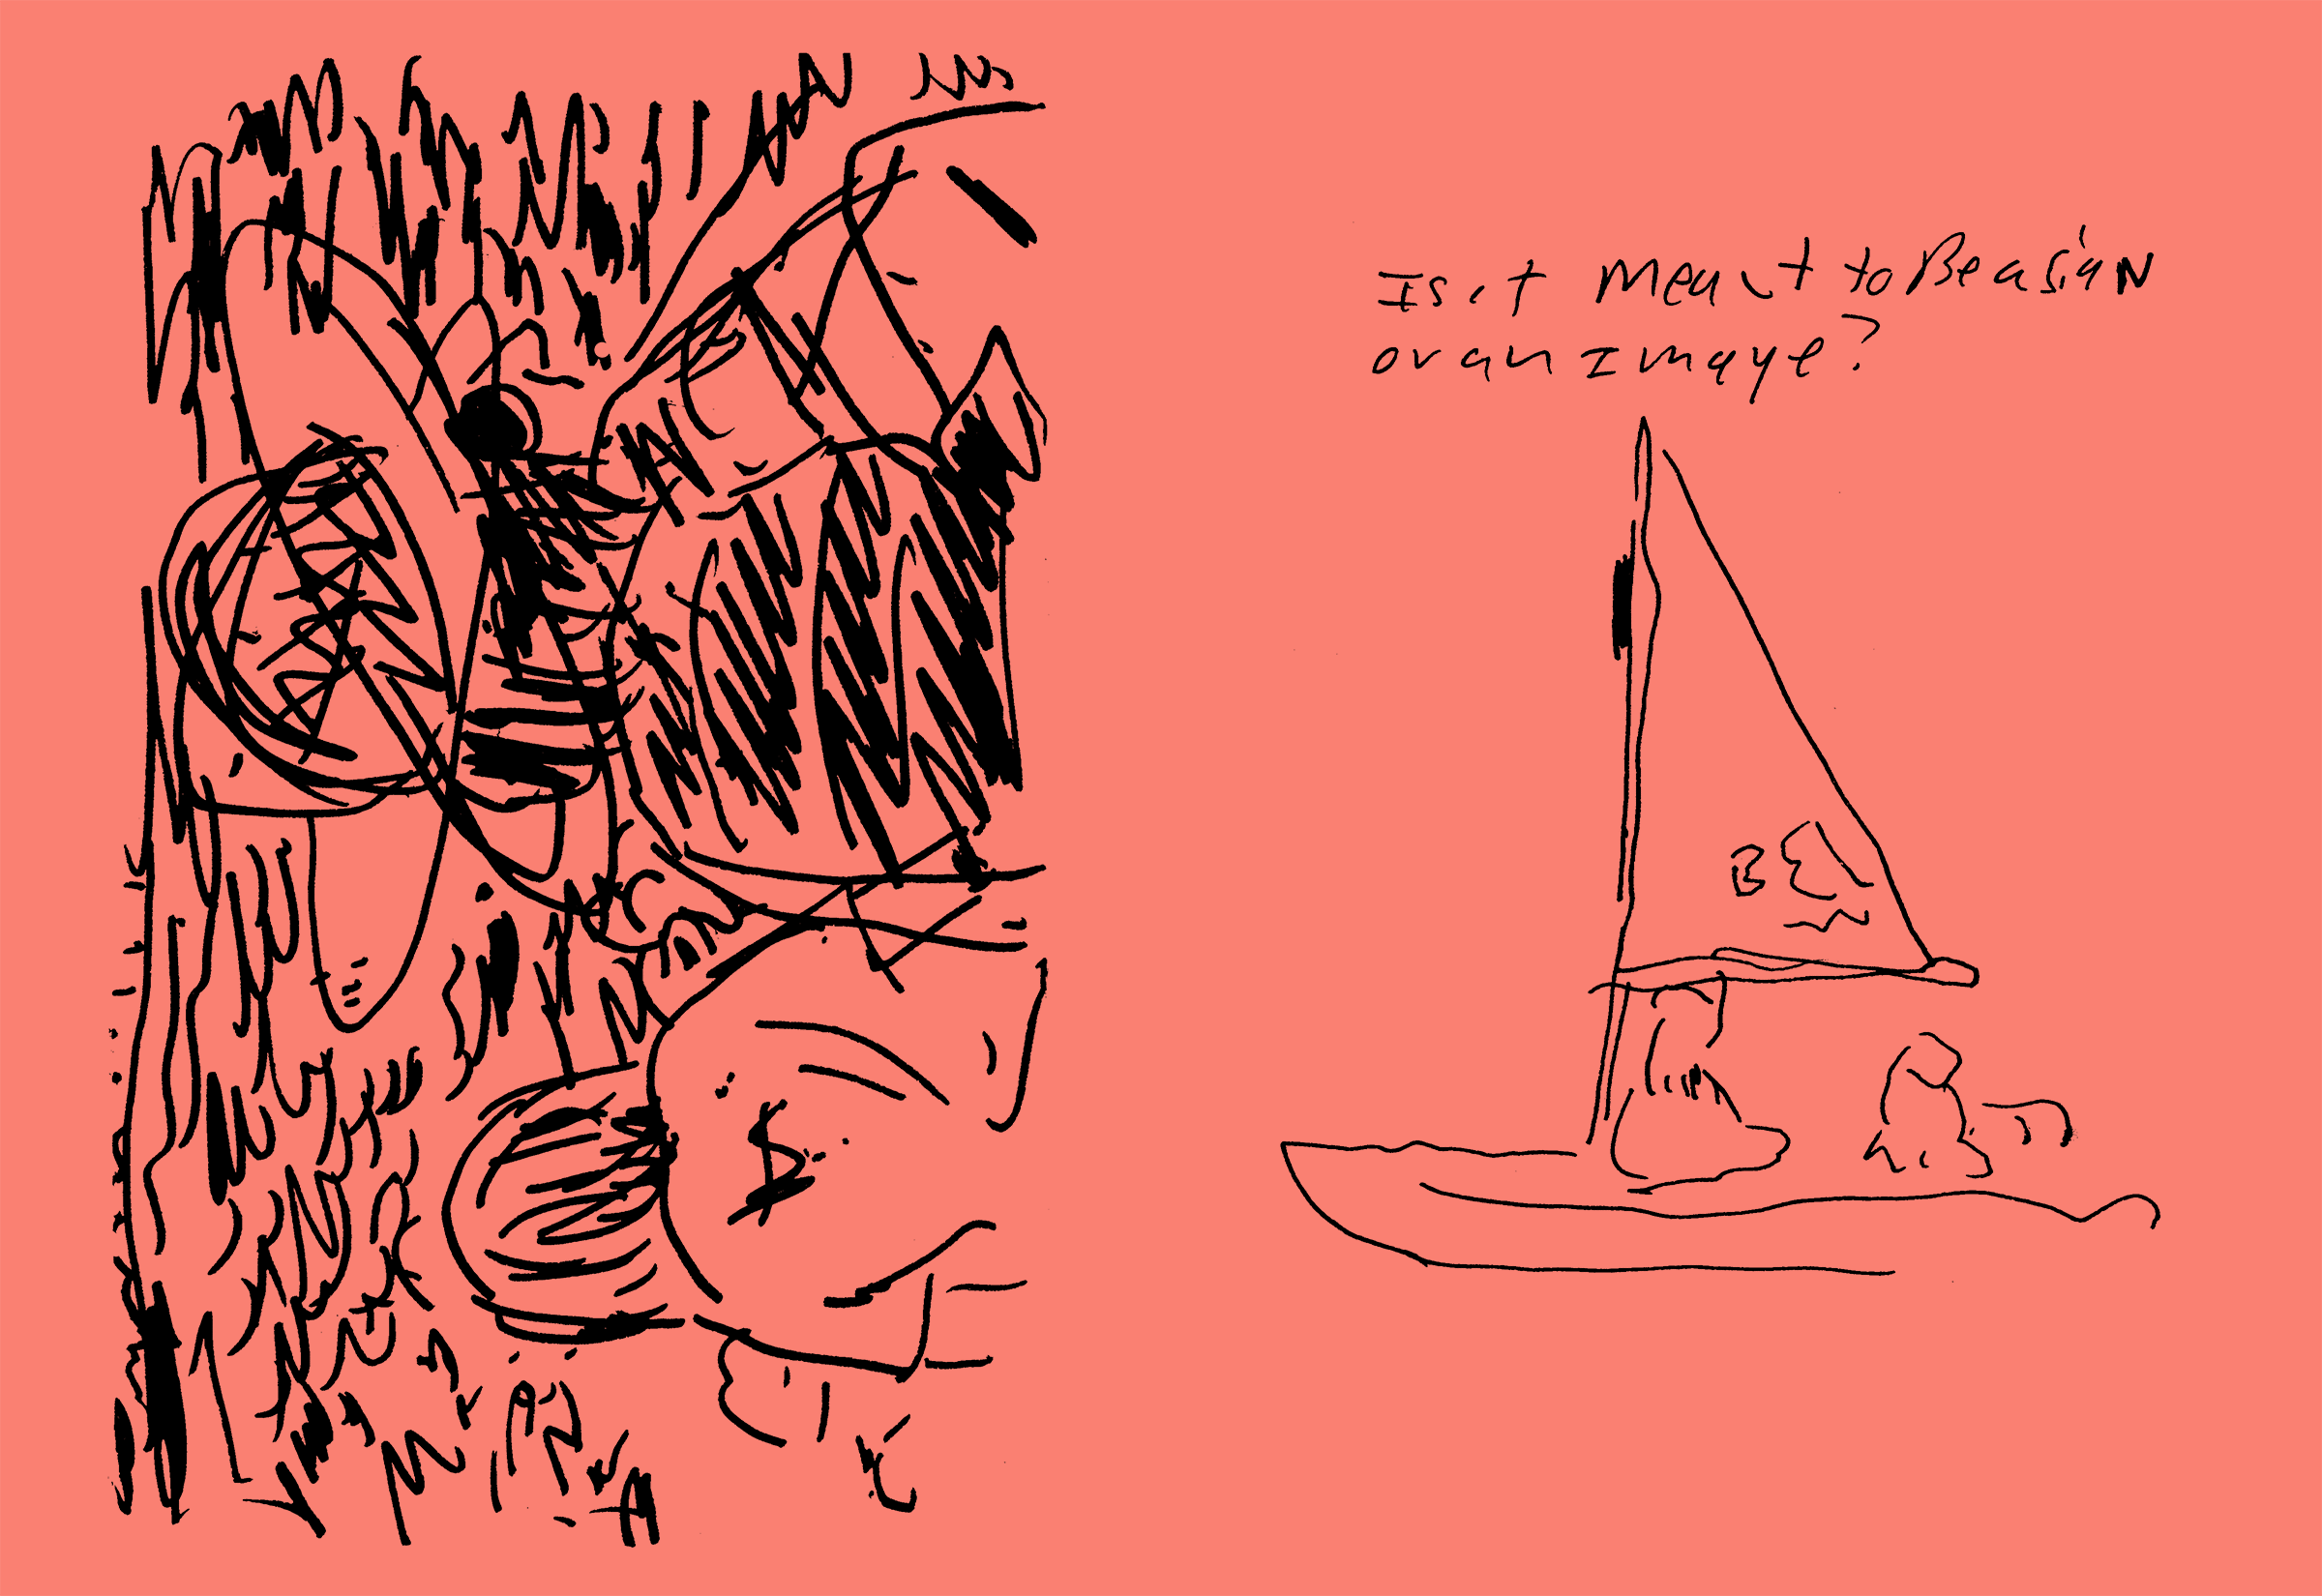 Is it meant to Be a sign
or an Image?